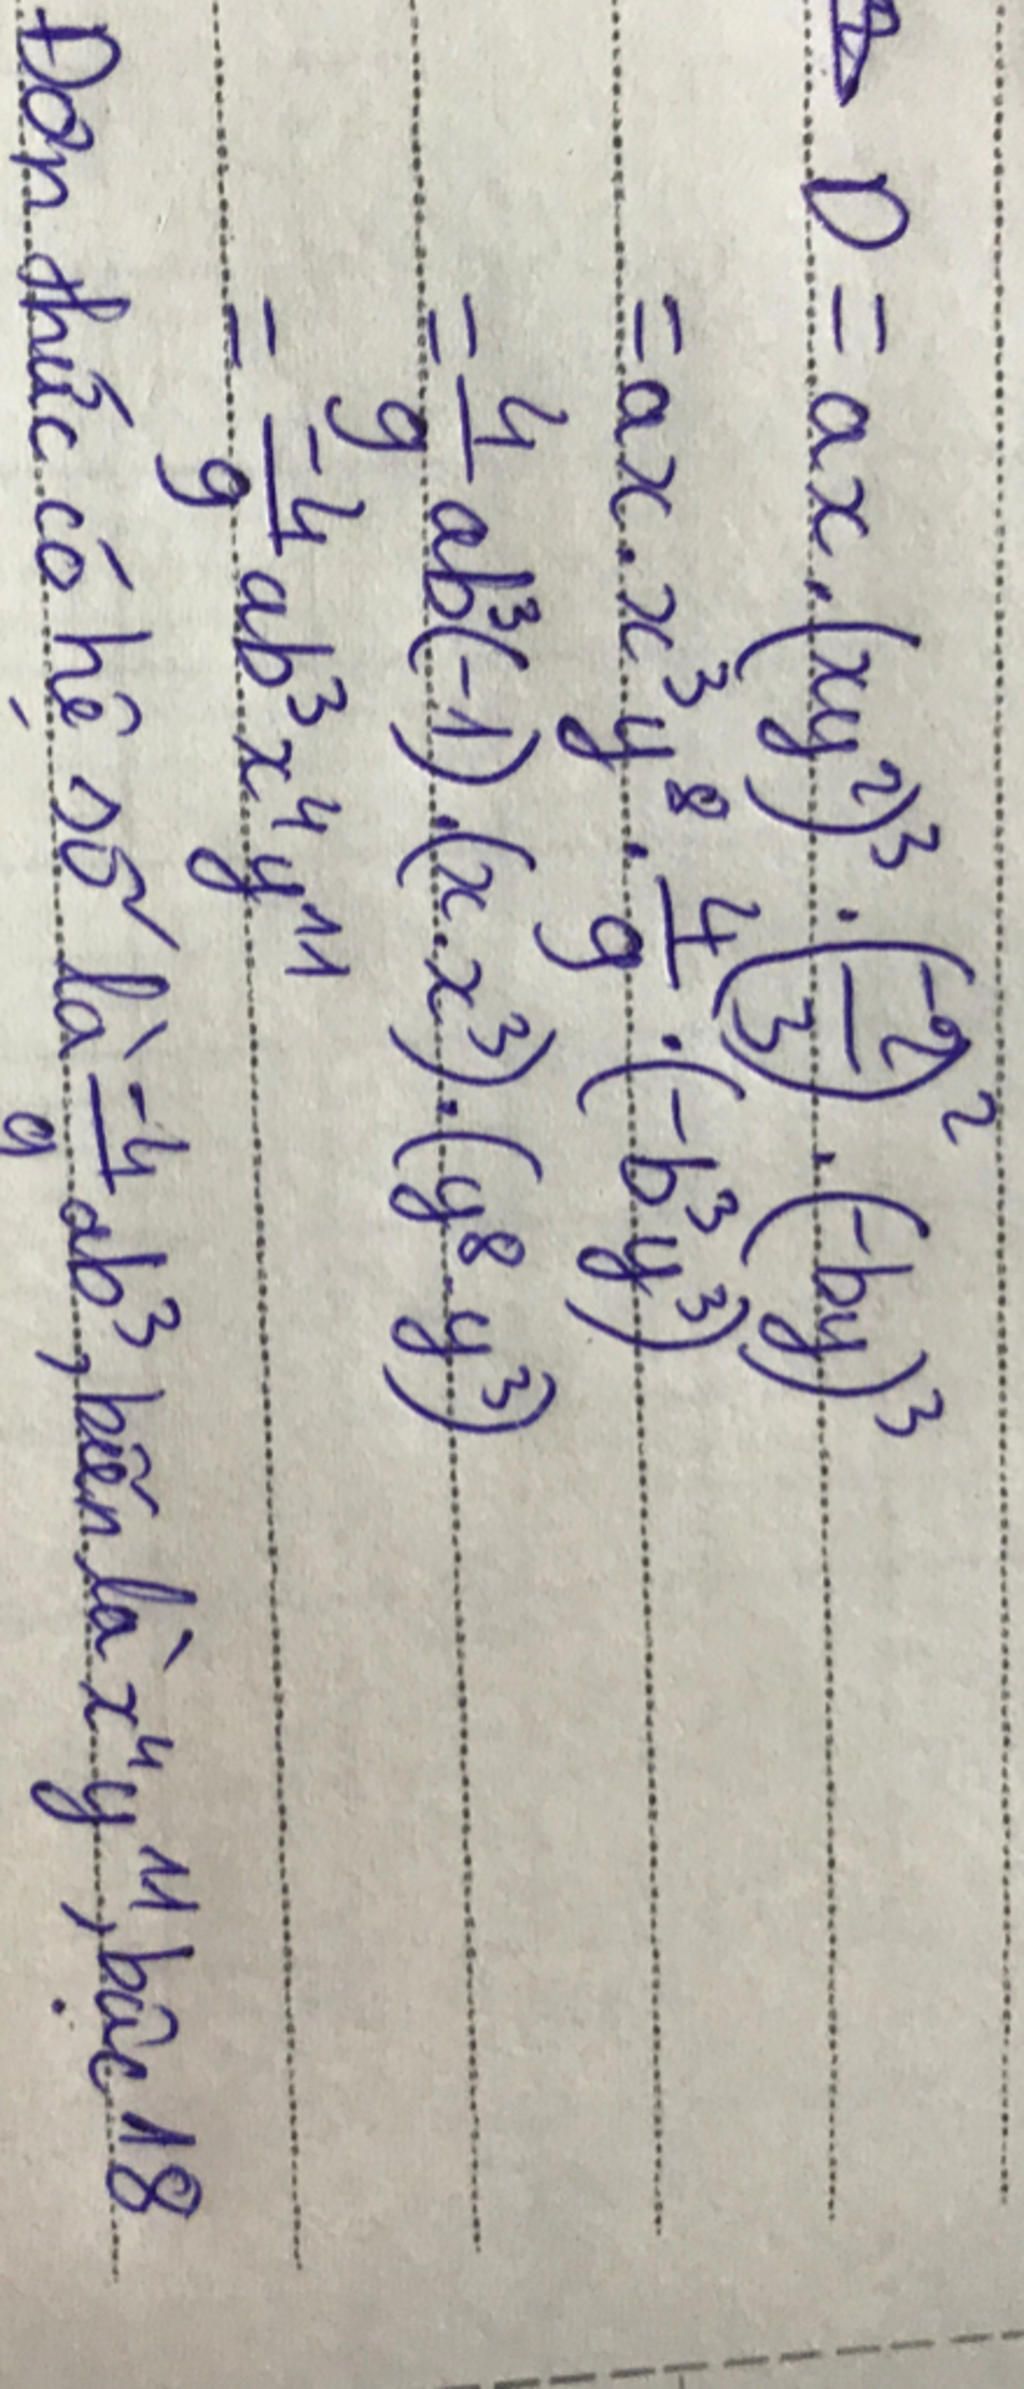 D = ax.(xy²)³.(-2/3)².(-by)³
= ax.x³y⁸.4/9.(-b³y³)
= 4/9 ab³(-1).(x.x³).(y⁸.y³)
= -4/9 ab³x⁴y¹¹
Đơn thức có hệ số là -4/9 ab³, biến là x⁴y¹¹, bậc 18